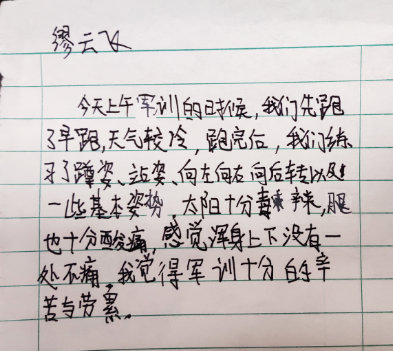 缪云飞
今天上午军训的时候，我们先跑
了早跑，天气较冷，跑完后，我们练
习了蹲姿、站姿、向左向右向后转以及
一些基本姿势，太阳十分毒辣，腿
也十分酸痛，感觉浑身上下没有一
处不痛，我觉得军训十分的辛
苦与劳累。